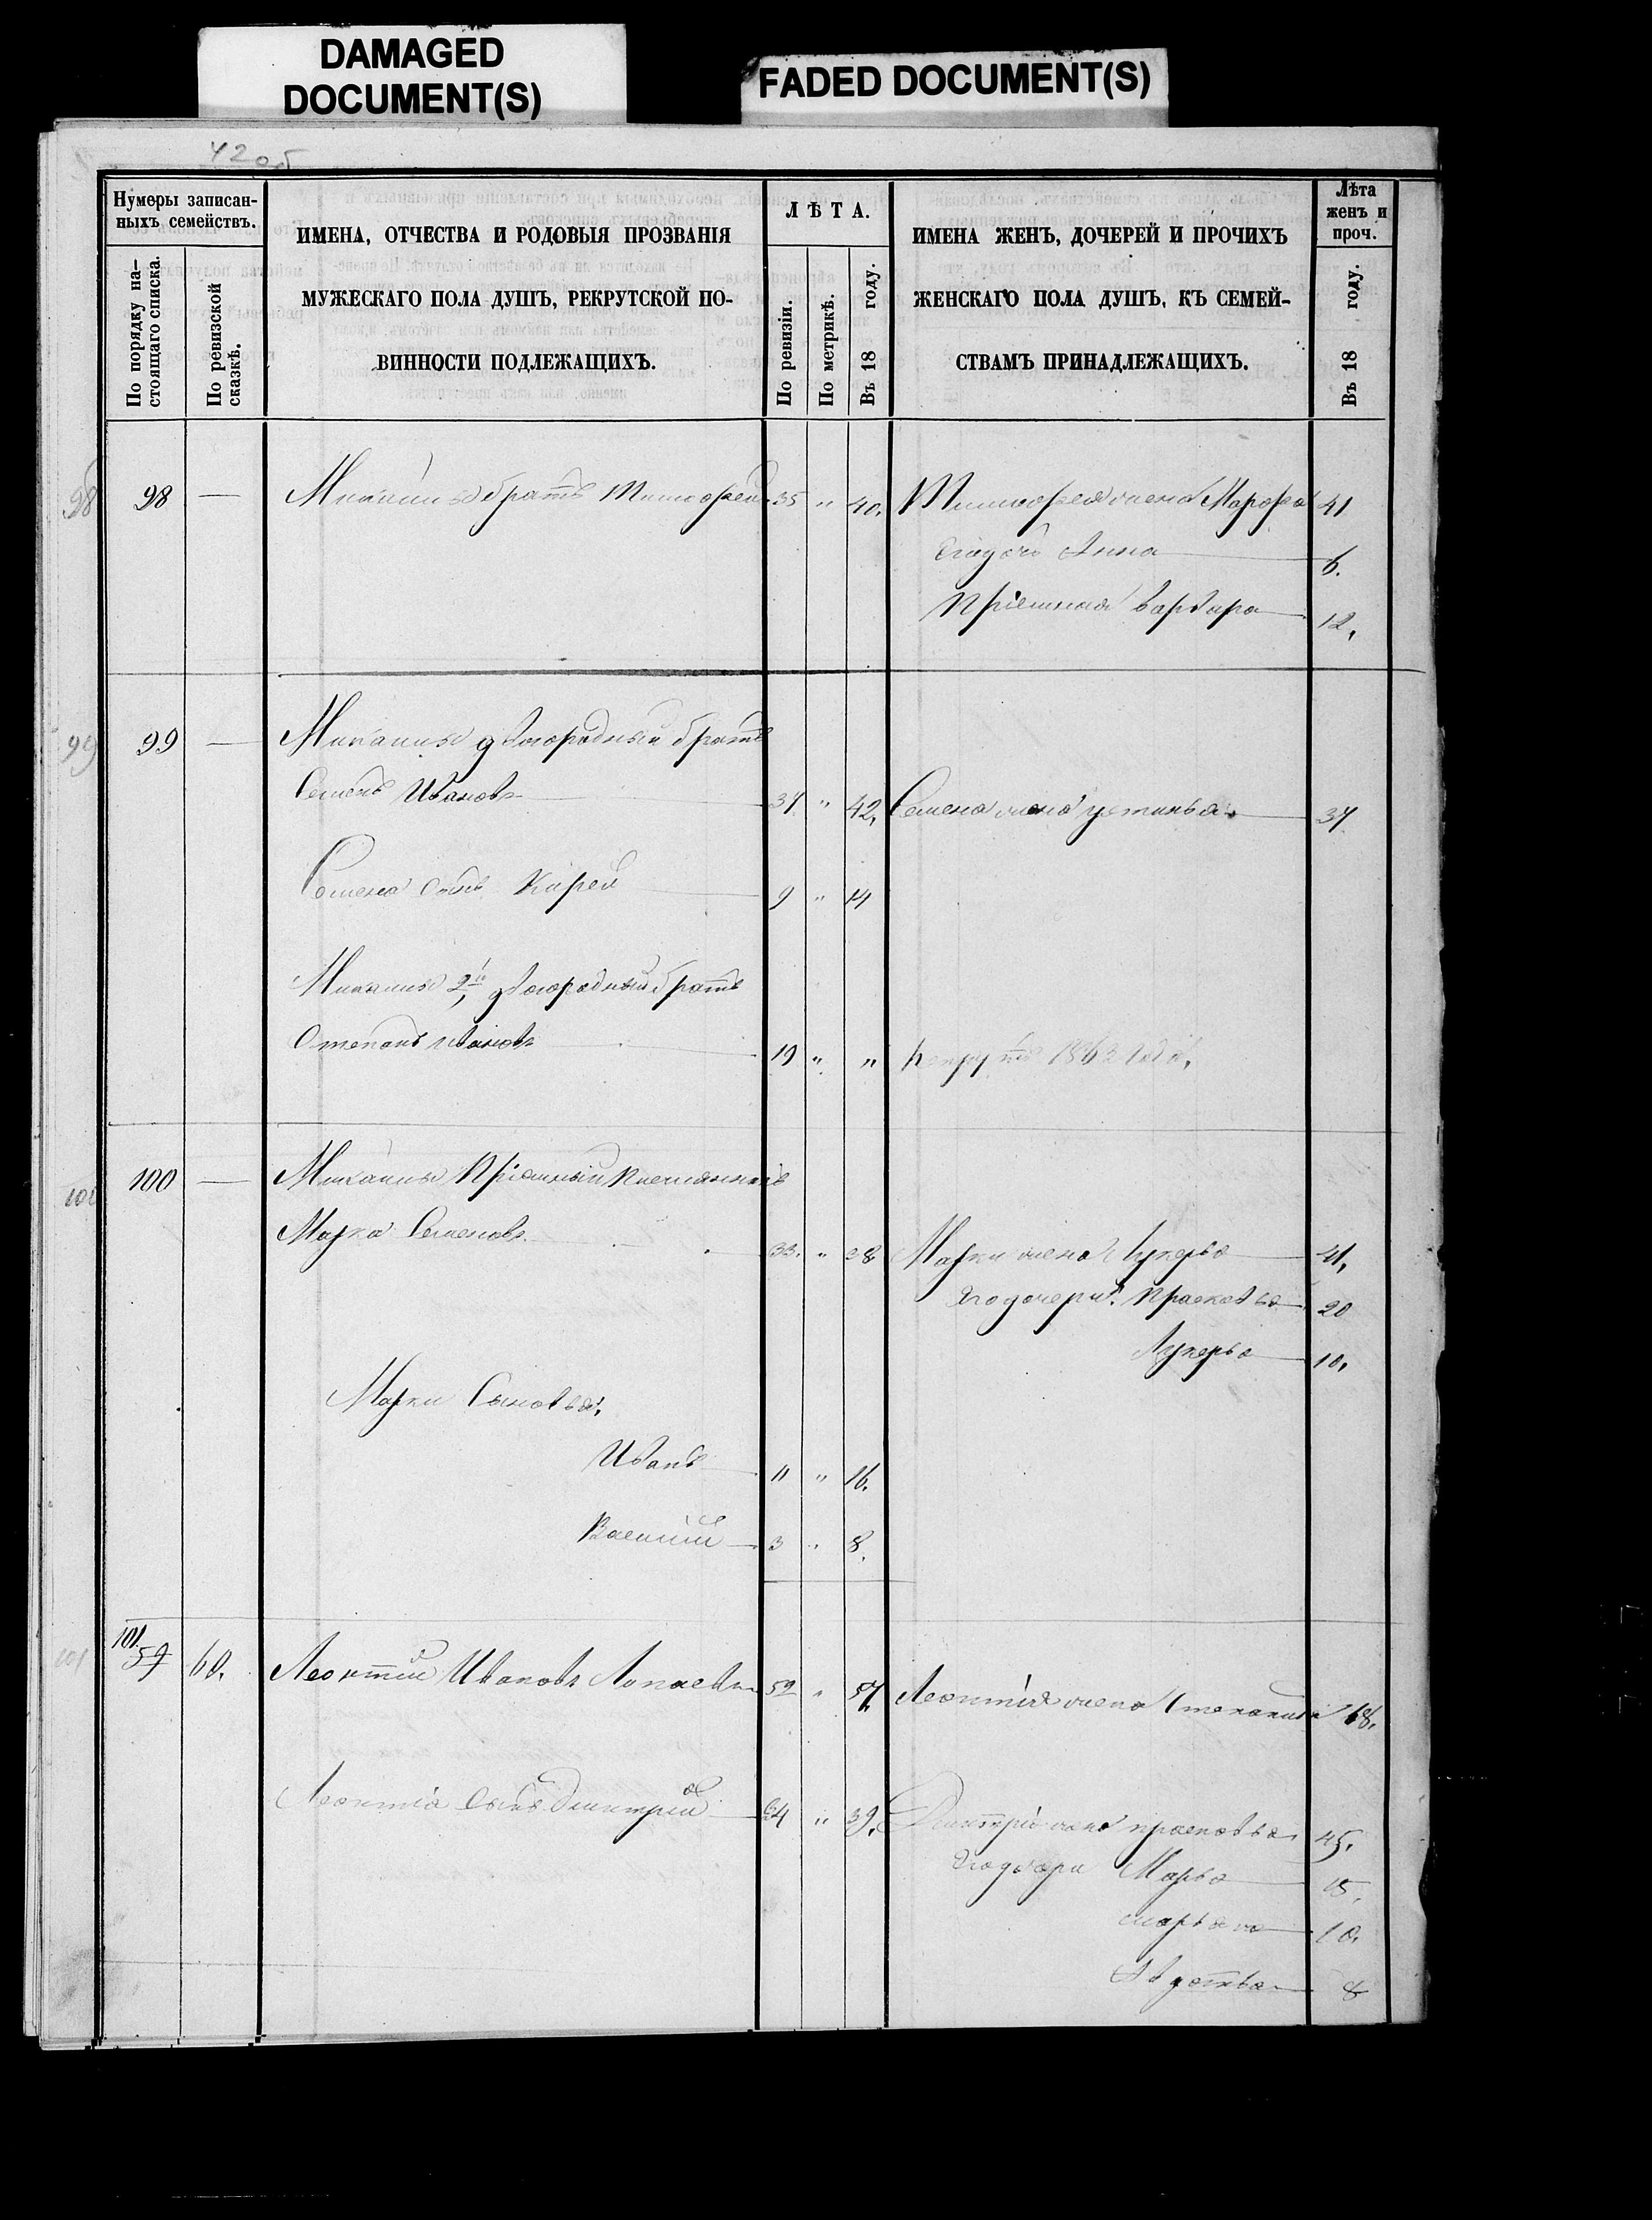 DAMAGED
DOCUMENT(S)
FADED DOCUMENT(S)
42 об
Нумеры записан-
ныхъ семействъ.
По порядку на-
стоящаго списка.
По ревизской
сказкѣ.
ИМЕНА, ОТЧЕСТВА И РОДОВЫЯ ПРОЗВАНІЯ
МУЖЕСКАГО ПОЛА ДУШЪ, РЕКРУТСКОЙ ПО-
ВИННОСТИ ПОДЛЕЖАЩИХЪ.
ЛѢТА.
По ревизіи.
По метрикѣ.
Въ 18 году.
ИМЕНА ЖЕНЪ, ДОЧЕРЕЙ И ПРОЧИХЪ
ЖЕНСКАГО ПОЛА ДУШЪ, КЪ СЕМЕЙ-
СТВАМЪ ПРИНАДЛЕЖАЩИХЪ.
Лѣта
женъ и
проч.
Въ 18 году.
98 98 — братъ Тимофей 35 " 40. Тимофея жена Марфа 41
Егодочь Анна 6.
Пріемная Варвара 12.
99 99 — двоюродный братъ
Семенъ Ивановъ 37 " 42, Семена жена Устинья 37
Семена сынъ 9 " 14
2й двоюродный братъ
Степанъ Ивановъ 19 " " Рекрутъ 1863 года.
100 100 — Пріемный Племянникъ
Марка Семеновъ 33. " 38 Марки жена Лукерья 41,
Егодочери: Прасковья 20
Лукерья 10,
Марки Сыновья,
Иванъ 11 " 16.
Василій 3 " 8.
101 101. 59 60. Леонтій Ивановъ 52 " 57. Леонтія жена Степанида 68.
Леонтія Сынъ Дмитрій 34 " 39. Дмитрія жена Прасковья 45.
Егодочери Марья 15.
Марьяна 10.
Авдотья 8